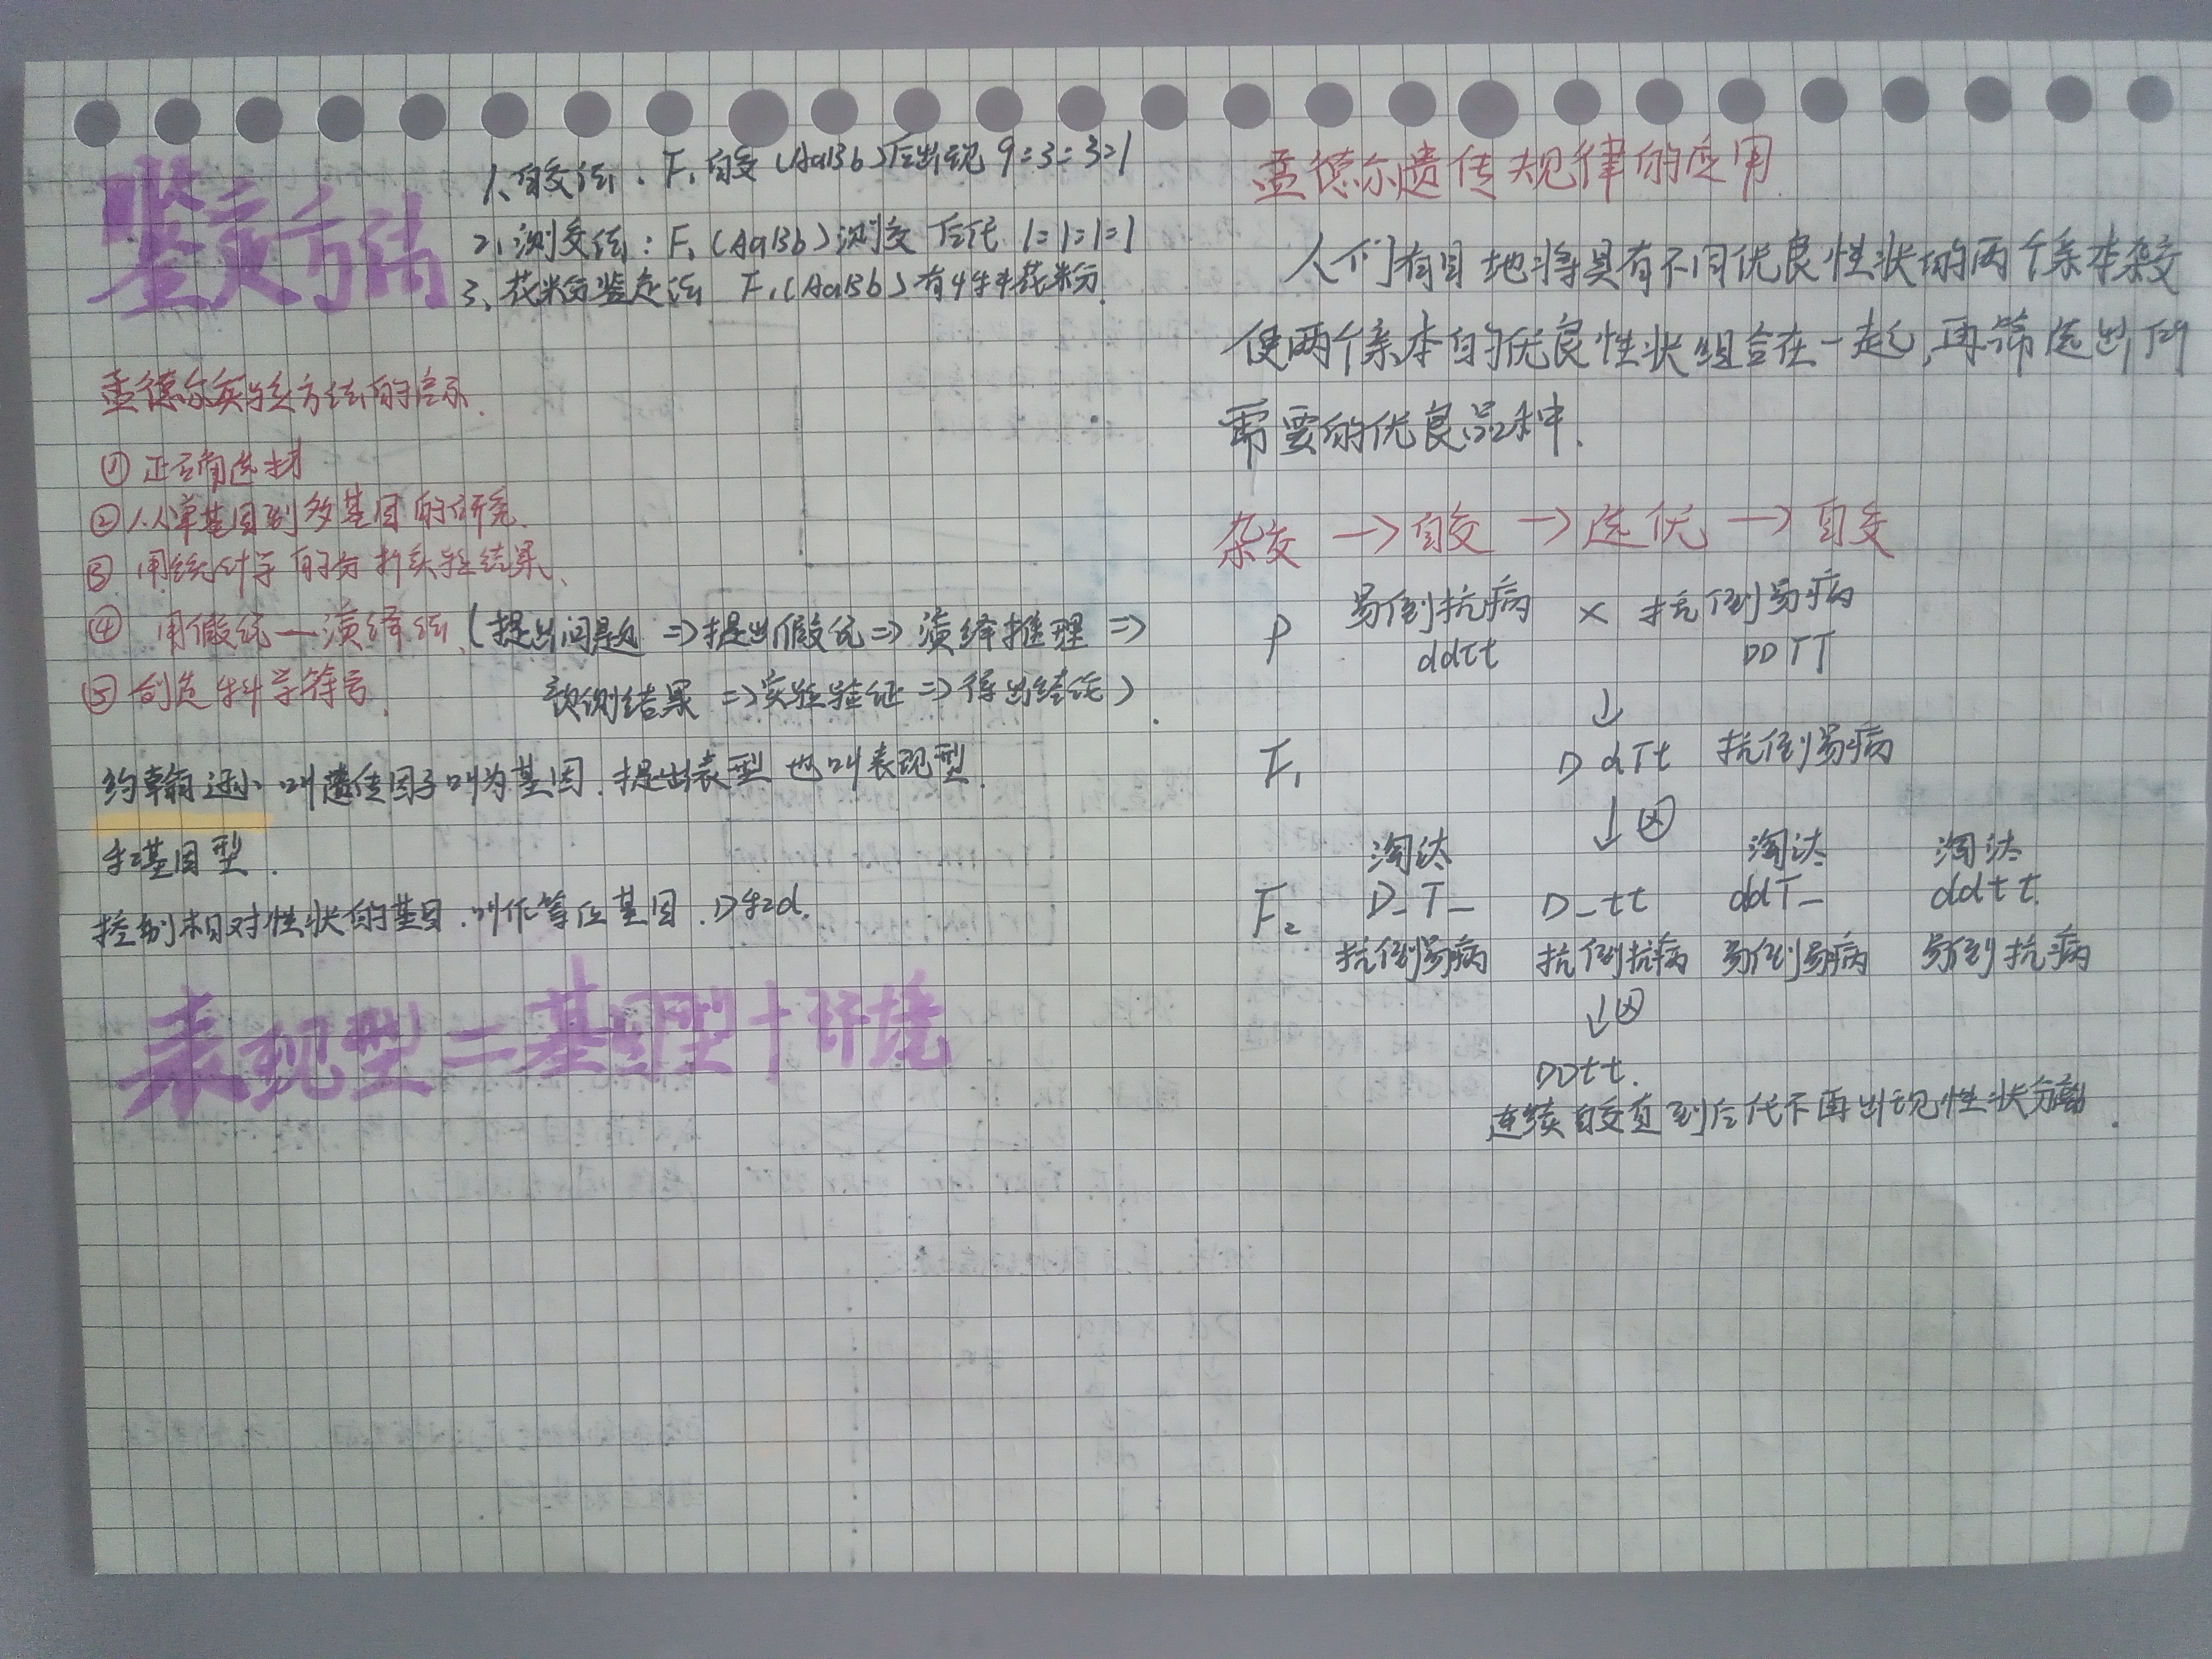 鉴定方法
1、自交法:F₁自交(AaBb)后出现9:3:3:1
2、测交法:F₁(AaBb)测交 后代 1:1:1:1
3、花粉鉴定法 F₁(AaBb)有4种花粉.
孟德尔实验方法的启示.
① 正确选材
② 从单基因到多基因的研究.
③ 用统计学的分析实验结果、
④ 用假说—演绎法.(提出问题⇒提出假说⇒演绎推理⇒
预测结果⇒实验验证⇒得出结论).
⑤ 创造科学符号.
约翰逊 叫遗传因子叫为基因.提出表型也叫表现型.
和基因型.
控制相对性状的基因.叫作等位基因.D和d.
表现型=基因型+环境
孟德尔遗传规律的应用.
人们有目地将具有不同优良性状的两个亲本杂交
使两个亲本的优良性状组合在一起,再筛选出所
需要的优良品种.
杂交→自交→选优→自交
P 易倒抗病 × 抗倒易病
ddtt DDTT
↓
F₁ DdTt 抗倒易病
↓⊗
淘汰 淘汰 淘汰
F₂ D_T_ D_tt ddT_ ddtt.
抗倒易病 抗倒抗病 易倒易病 易倒抗病
↓⊗
DDtt.
连续自交直到后代不再出现性状分离.